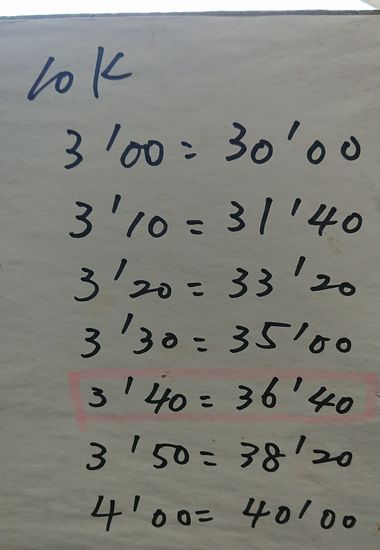 10K
3'00=30'00
3'10=31'40
3'20=33'20
3'30=35'00
3'40=36'40
3'50=38'20
4'00=40'00